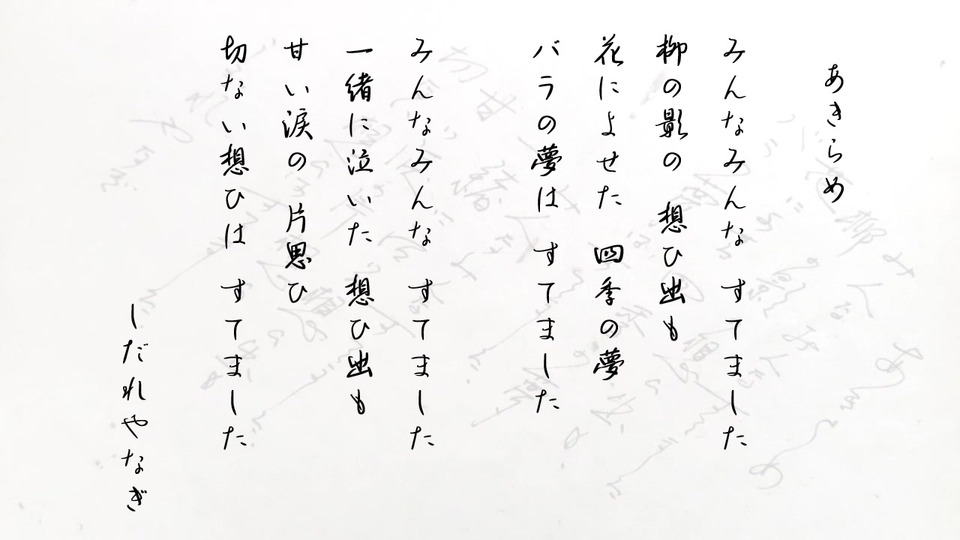 あきらめ
みんなみんな すてました
柳の影の 想ひ出も
花によせた 四季の夢
バラの夢は すてました
みんなみんな すてました
一緒に泣いた 想ひ出も
甘い涙の 片思ひ
切ない想ひは すてました
しだれやなぎ